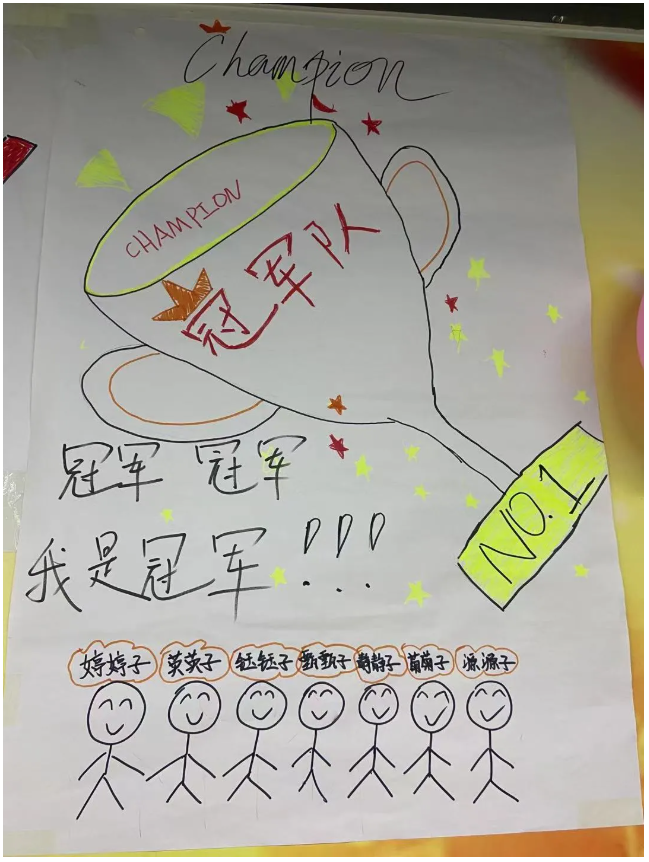 Champion
CHAMPION
冠军队
冠军 冠军
NO.1
我是冠军!!!
婷婷子 英英子 钰钰子 甄甄子 静静子 萌萌子 源源子